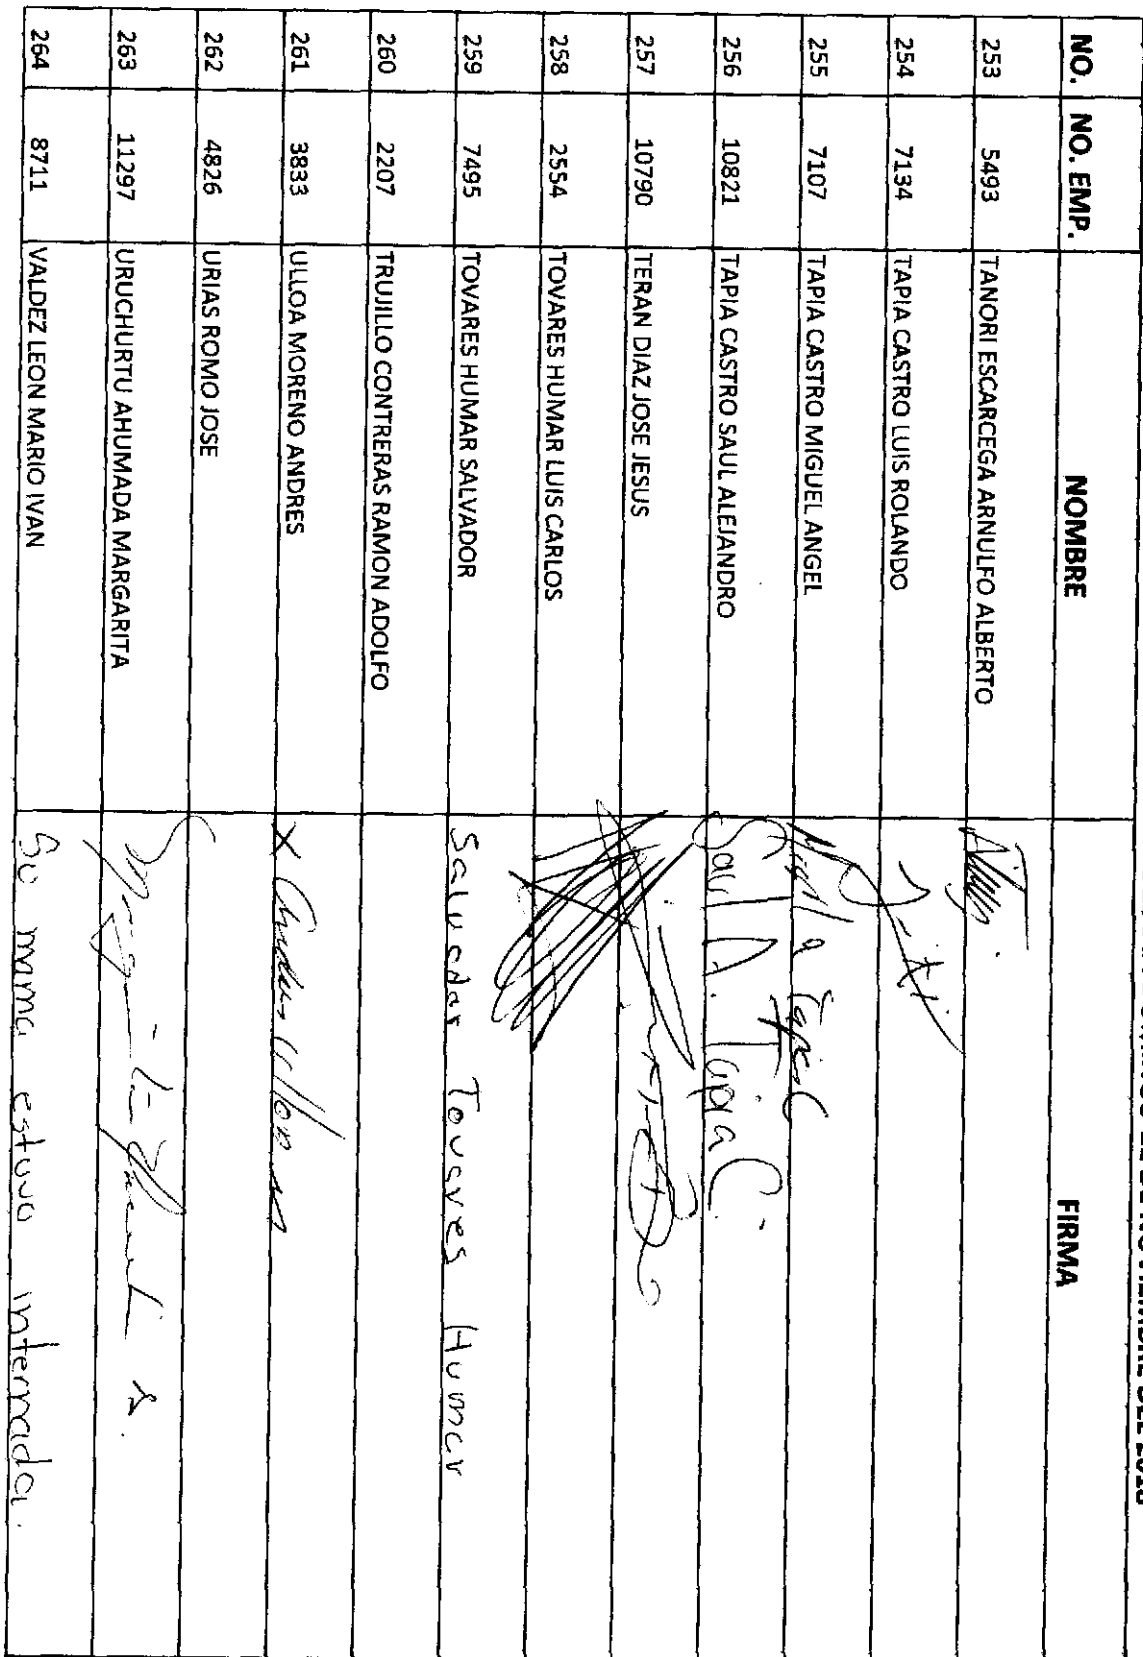 NOVIEMBRE DEL 2018
NO. NO. EMP. NOMBRE FIRMA
253 5493 TANORI ESCARCEGA ARNULFO ALBERTO
254 7134 TAPIA CASTRO LUIS ROLANDO
255 7107 TAPIA CASTRO MIGUEL ANGEL
256 10821 TAPIA CASTRO SAUL ALEJANDRO Saul A. Tapia C.
257 10790 TERAN DIAZ JOSE JESUS
258 2554 TOVARES HUMAR LUIS CARLOS
259 7495 TOVARES HUMAR SALVADOR Salvador Tovares Humar
260 2207 TRUJILLO CONTRERAS RAMON ADOLFO
261 3833 ULLOA MORENO ANDRES X
262 4826 URIAS ROMO JOSE
263 11297 URUCHURTU AHUMADA MARGARITA
264 8711 VALDEZ LEON MARIO IVAN Su mama estuvo internada.